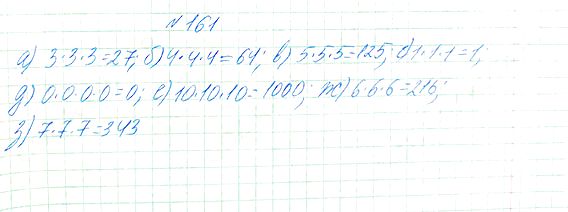 № 161
а) 3·3·3=27; б) 4·4·4=64; в) 5·5·5=125; г) 1·1·1=1;
д) 0·0·0·0=0; е) 10·10·10=1000; ж) 6·6·6=216;
з) 7·7·7=343